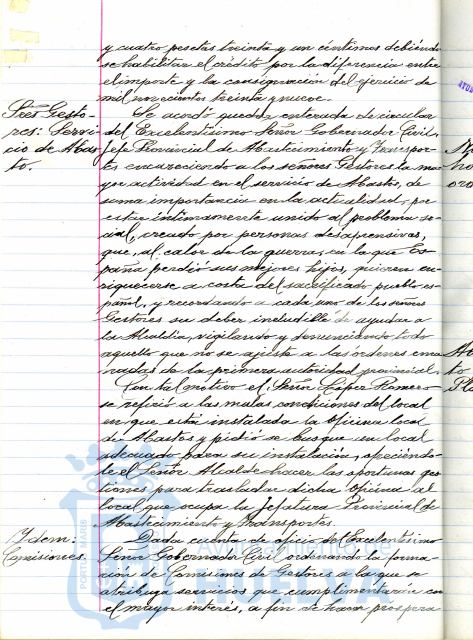 y cuatro pesetas treinta y un céntimos debiendo
se habilitar el crédito por la diferencia entre
el importe y la consignación del ejercicio de
mil novecientos treinta y nueve.
Sres Gesto-
res: Servi-
cio de Abas-
to.
Se acordó quedar enterada de circular
del Excelentísimo Señor Gobernador Civil,
Jefe Provincial de Abastecimiento y Transpor-
tes encareciendo a los señores Gestores la ma-
yor actividad en el servicio de Abastos, de
suma importancia en la actualidad, por
estar íntimamente unido al problema so-
cial, creado por personas desaprensivas,
que, al calor de la guerra, en la que Es-
paña perdió sus mejores hijos, quieren en-
riquecerse a costa del sacrificado pueblo es-
pañol, y recordando a cada uno de los señores
Gestores su deber ineludible de ayudar a
la Alcaldía, vigilando y denunciando todo
aquello que no se ajuste a las órdenes ema-
nadas de la primera autoridad provincial.
Con tal motivo el Señor López Romero
se refirió a las malas condiciones del local
en que está instalada la Oficina local
de Abastos y pidió se busque un local
adecuado para su instalación, ofreciéndo-
le el Señor Alcalde hacer las oportunas ges-
tiones para trasladar dicha Oficina al
local que ocupa la Jefatura Provincial de
Abastecimiento y Transportes.
Idem:
Comisiones.
Dada cuenta de oficio del Excelentísimo
Señor Gobernador Civil ordenando la forma-
ción de Comisiones de Gestores a la que se
atribuya servicios que cumplimentarán con
el mayor interés, a fin de hacer prospera